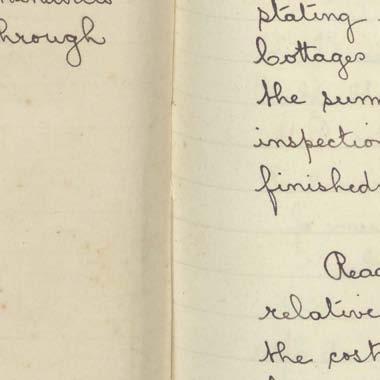 through
stating
Cottages
the sum
inspection
finished
Read
relative
the cost